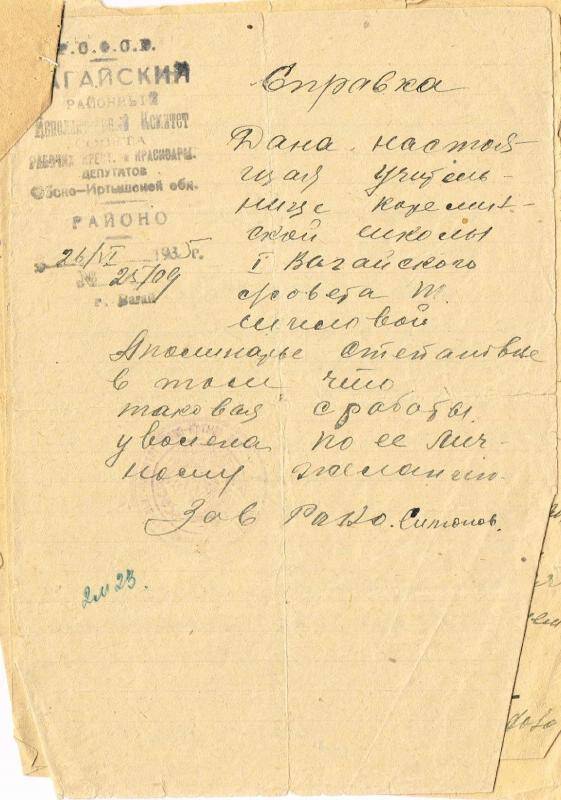 Р.С.Ф.С.Р.
АГАЙСКИЙ
РАЙОННЫЙ
Исполнительный Комитет
СОВЕТА
РАБОЧИХ КРЕСТ. и КРАСНОАРМ.
ДЕПУТАТОВ
Обско-Иртышской обл.
РАЙОНО
26/VI 1935г.
№ 25/09
г. Вагай
Справка
Дана настоя-
щая учитель-
нице
ской школы
I Вагайского
совета т.
Апполинарье Степановне
в том что
таковая с работы
уволена по ее лич-
ному желанию.
Зав РаНо. Симонов.
2м 23.